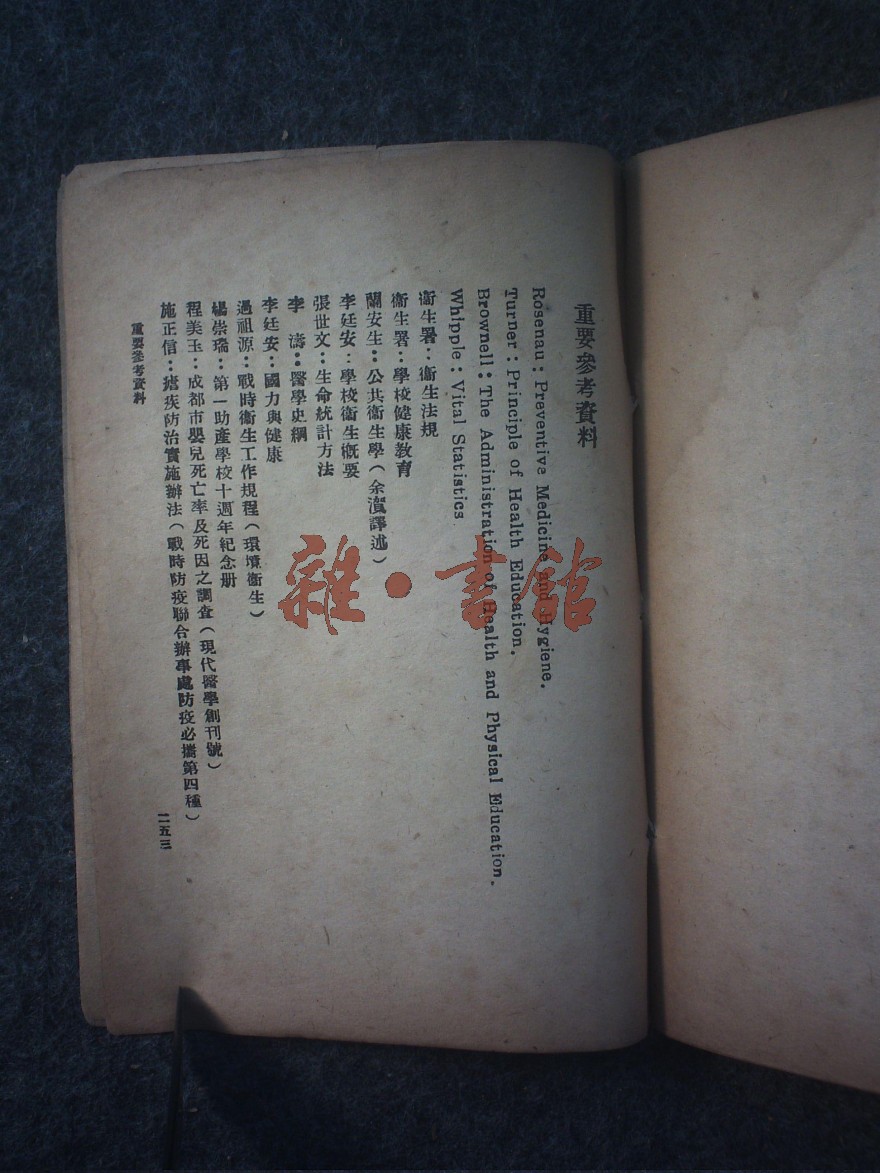 重要參考資料
Rosenau: Preventive Medicine and Hygiene.
Turner: Principle of Health Education.
Brownell: The Administration of Health and Physical Education.
Whipple: Vital Statistics
衞生署：衞生法規
衞生署：學校健康教育
蘭安生：公共衞生學（余濱譯述）
李廷安：學校衞生概要
張世文：生命統計方法
李　濤：醫學史綱
李廷安：國力與健康
過祖源：戰時衞生工作規程（環境衞生）
楊崇瑞：第一助產學校十週年紀念册
程美玉：成都市嬰兒死亡率及死因之調查（現代醫學創刊號）
施正信：瘧疾防治實施辦法（戰時防疫聯合辦事處防疫必攜第四種）
重要參考資料
二五三
雜·書館